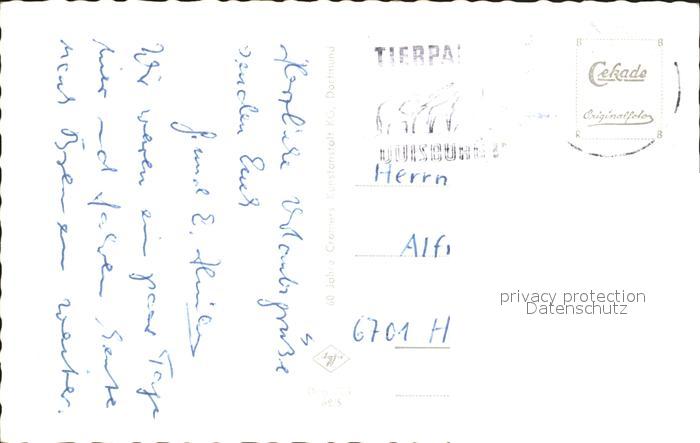 Herzliche Urlaubsgrüße
senden Euch
Wir waren ein paar Tage
hier und fahren heute
nach
weiter.
60 Jahre Cramers Kunstanstalt KG, Dortmund
TIERPA
DUISBURG
Cekade
Originalfoto
Herrn
Alfr
6701 H
privacy protection
Datenschutz